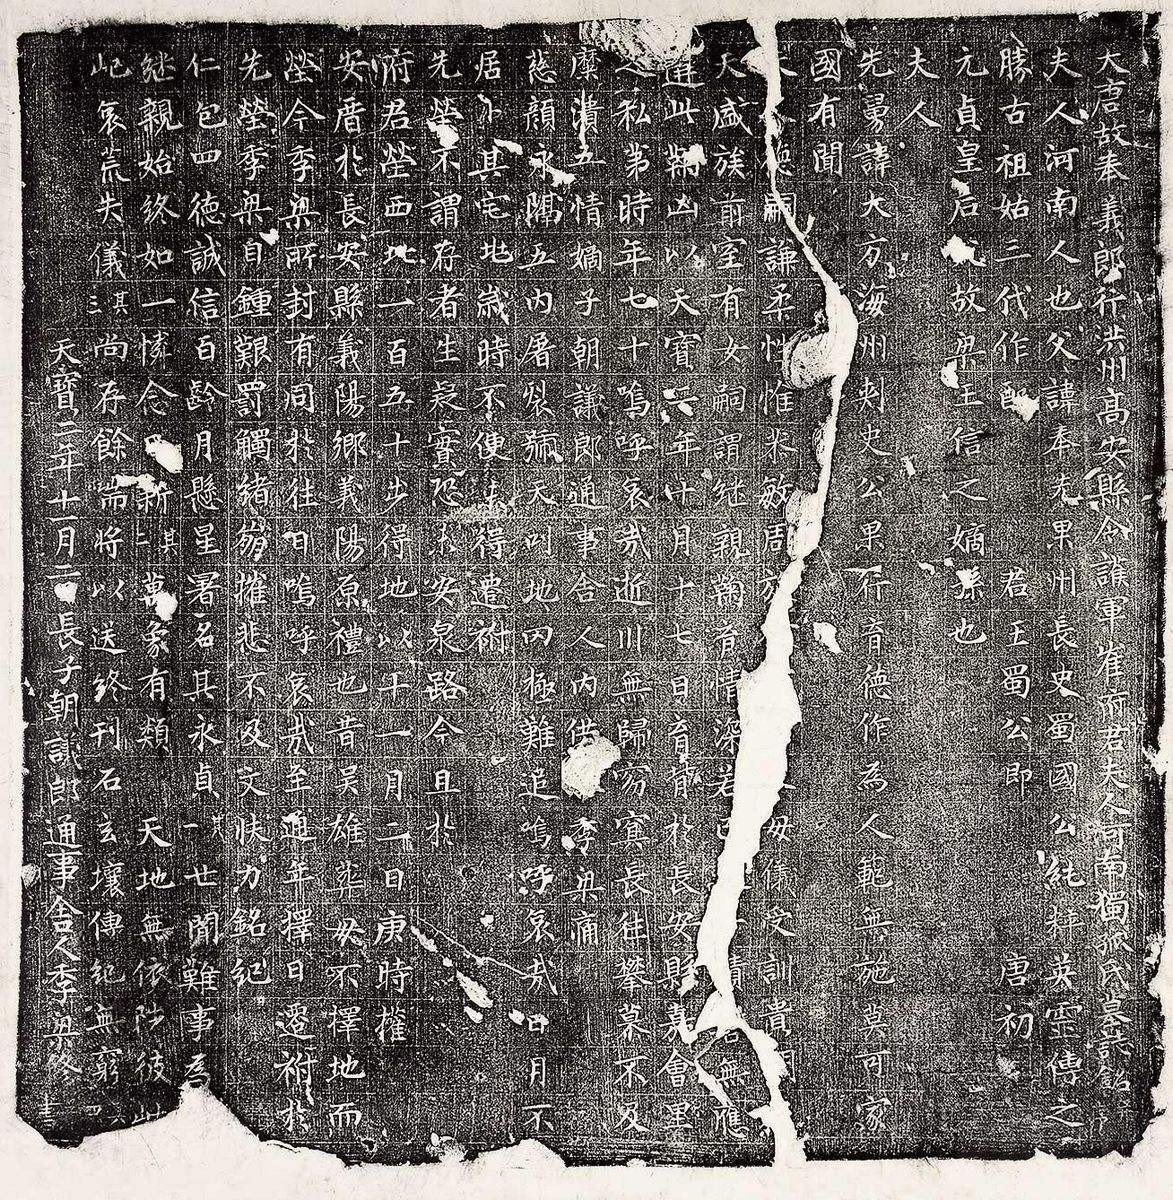 大唐故奉義郎行洪州高安縣令護軍崔府君夫人河南獨孤氏墓誌銘
夫人河南人也父諱奉先果州長史蜀國公純粹英靈傳之
勝古祖姑三代作配 君王蜀公即 唐初
元貞皇后 故梁王信之嫡孫也
夫人
先舅諱大方海州刺史公果行育德作為人範無施莫可家
國有聞
嗣謙柔性惟 敏周 母儀受訓貴
天盛族前室有女嗣謂继親鞠育情深若 無應
遘此鞠凶以天寶 年 月十七日 於長安縣嘉會里
私第時年七十嗚呼哀哉逝川無歸窮冥長往攀慕不及
糜潰五情嫡子朝議郎通事舍人內供 季梁痛
慈顏永隔五內屠裂號天叩地罔極難追嗚呼哀哉日月不
居卜其宅地歲時不便未得遷祔
先塋不謂存者生疑實恐 安泉路今且於
府君塋西北一百五十步得地以十一月二日庚時權
安厝於長安縣義陽鄉義陽原禮也昔吴雄葬母不擇地而
塋今季梁所封有同於往日嗚呼哀哉至通年擇日遷祔於
先塋季梁自鍾艱罰觸緒崩摧悲不及文快力銘紀
仁包四德誠信百齡月懸星署名其永貞其一世閒難事為
继親始終如一憐念 新其二萬象有類 天地無依陟彼
屺哀荒失儀其三尚存餘喘將以送終刊石玄壤傳紀無窮
天寶二年十一月二 長子朝議郎通事舍人季梁